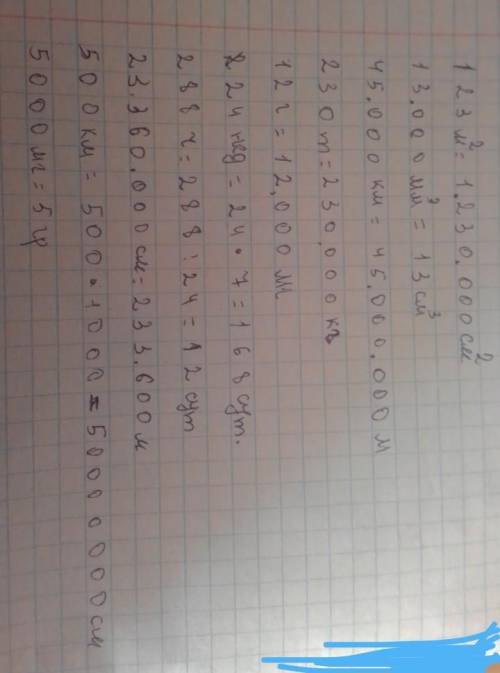 123 м² = 1.230.000 см²
13.000 мм³ = 13 см³
45.000 км = 45.000.000 м
230 т = 230.000 кг
12 г = 12.000 мг
24 нед = 24 • 7 = 168 сут.
288 ч = 288 : 24 = 12 сут
23.360.000 см = 233.600 м
500 км = 500 • 1000 = 50000000 см
5000 мг = 5 гр